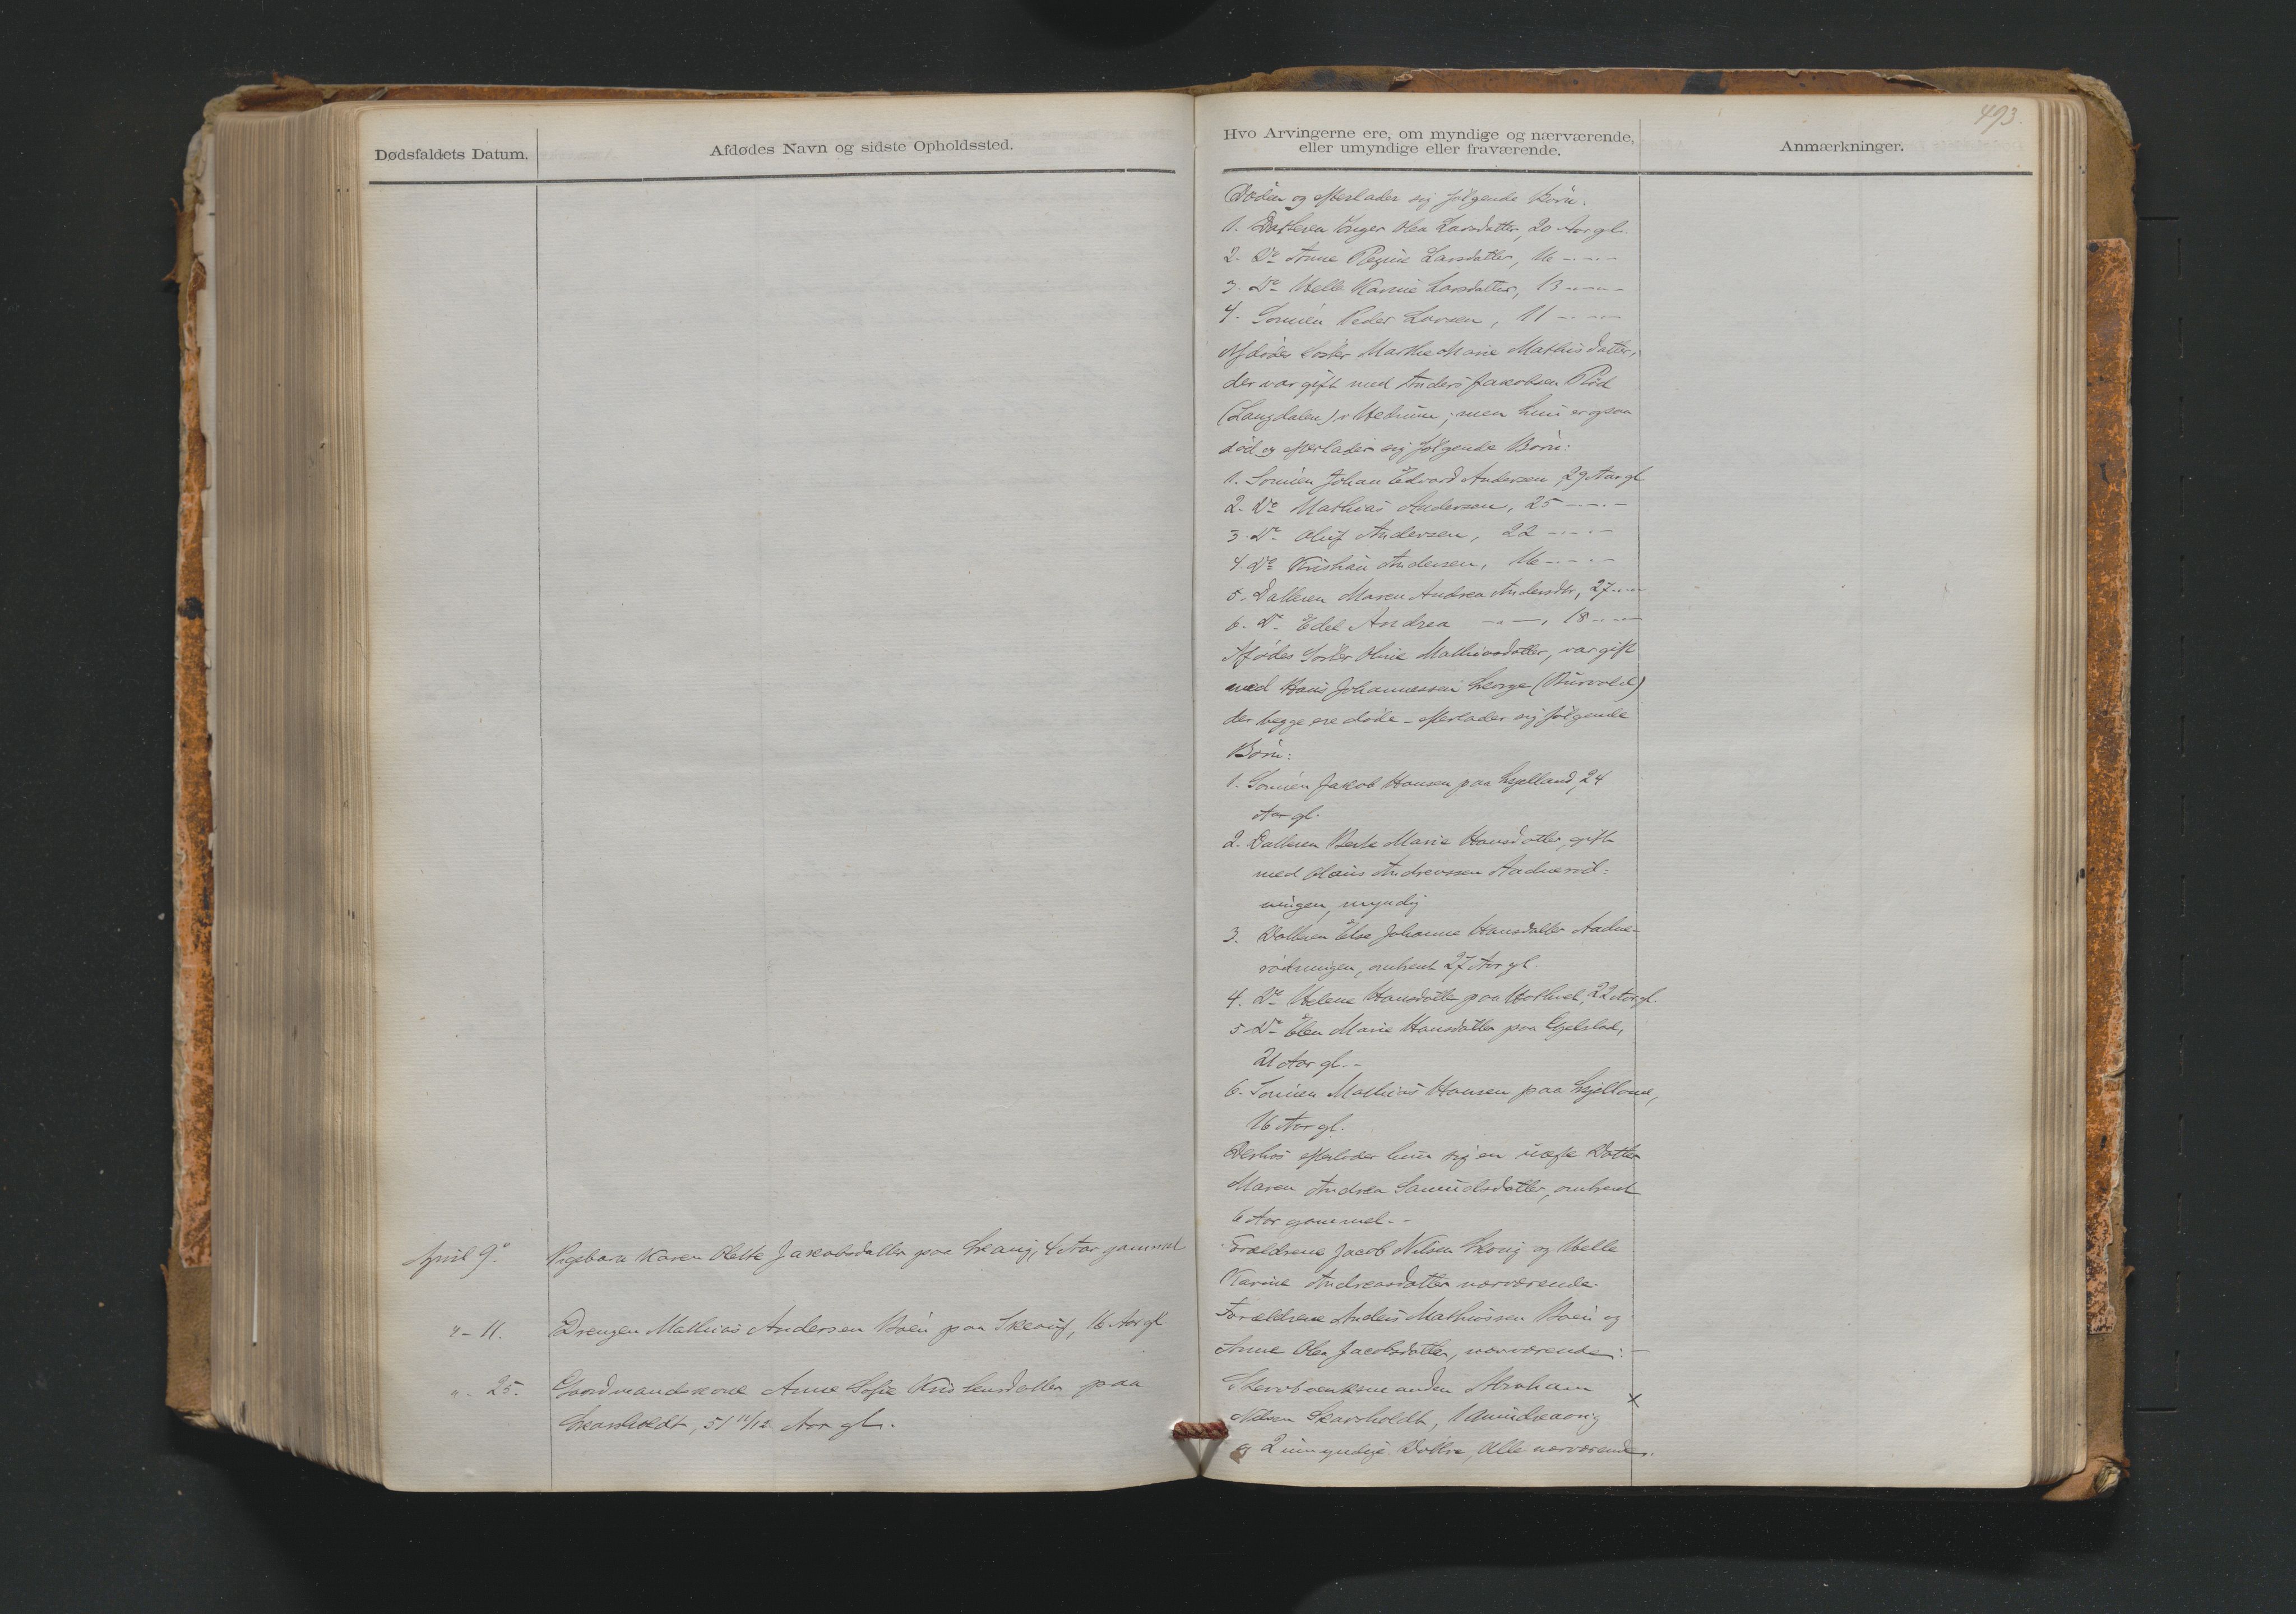 493.
Dødsfaldets Datum.
Afdødes Navn og sidste Opholdssted.
Hvo Arvingerne ere, om myndige og nærværende,
eller umyndige eller fraværende.
Anmærkninger.
Døden og efterlader sig følgende Børn:
1. Datteren Inger Olea Larsdatter, 20 Aar gl.
2. Do Anne Regine Larsdatter, 16 -..-
3. Do Helle Karine Larsdatter, 13 -..-
4. Sønnen Peder Larsen, 11 -..-
Afdødes Søster Marthe Marie Mathisdatter,
der var gift med Anders Jakobsen Rød
(Langdalen) i Hedrum; men hun er ogsaa
død og efterlader sig følgende Børn:
1. Sønnen Johan Edvard Andersen, 29 Aar gl
2. Do Mathias Andersen, 25 -..-
3. Do Oluf Andersen, 22 -..-
4. Do Kristian Andersen, 16 -..-
5. Datteren Maren Andrea Andersdtr, 27 -..-
6. Do Edel Andrea -..-, 18 -..-
Afdødes Søster Oline Mathiasdatter, var gift
med Hans Johannessen
der begge ere døde - efterlader sig følgende
Børn:
1. Sønnen Jakob Hansen paa 24
Aar gl.
2. Datteren Berte Marie Hansdatter, gift
med Andreassen
myndig
3. Datteren Else Johanne Hansdatter
omtrent 27 Aar gl.
4. Do Helene Hansdatter paa 22 Aar gl.
5. Do Elen Marie Hansdatter paa
21 Aar gl. -
6. Sønnen Mathias Hansen paa
16 Aar gl.
Derhos efterlader hun sig en uægte Datter
Maren Andrea Samuelsdatter, omtrent
6 Aar gammel. -
April 9. Pigebarn Karen Olette Jakobsdatter paa Skaug, 4 Aar gammel
Forældrene Jacob Nilsen Skaug og Helle
Karine Andreasdatter nærværende.
"- 11. Drengen Mathias Andersen Boen paa Skaug, 16 Aar gl
Forældrene Anders Mathiassen Boen og
Anne Olea Jacobsdatter, nærværende: -
"- 25. Gaardmandskone Anne Sofie Knudsdatter paa
Skarsholdt, 51 11/12 Aar gl.
Abraham
Nilsen Skarsholdt, 1 mindreaarig
og 2 umyndige Døttre, Alle nærværende.
x